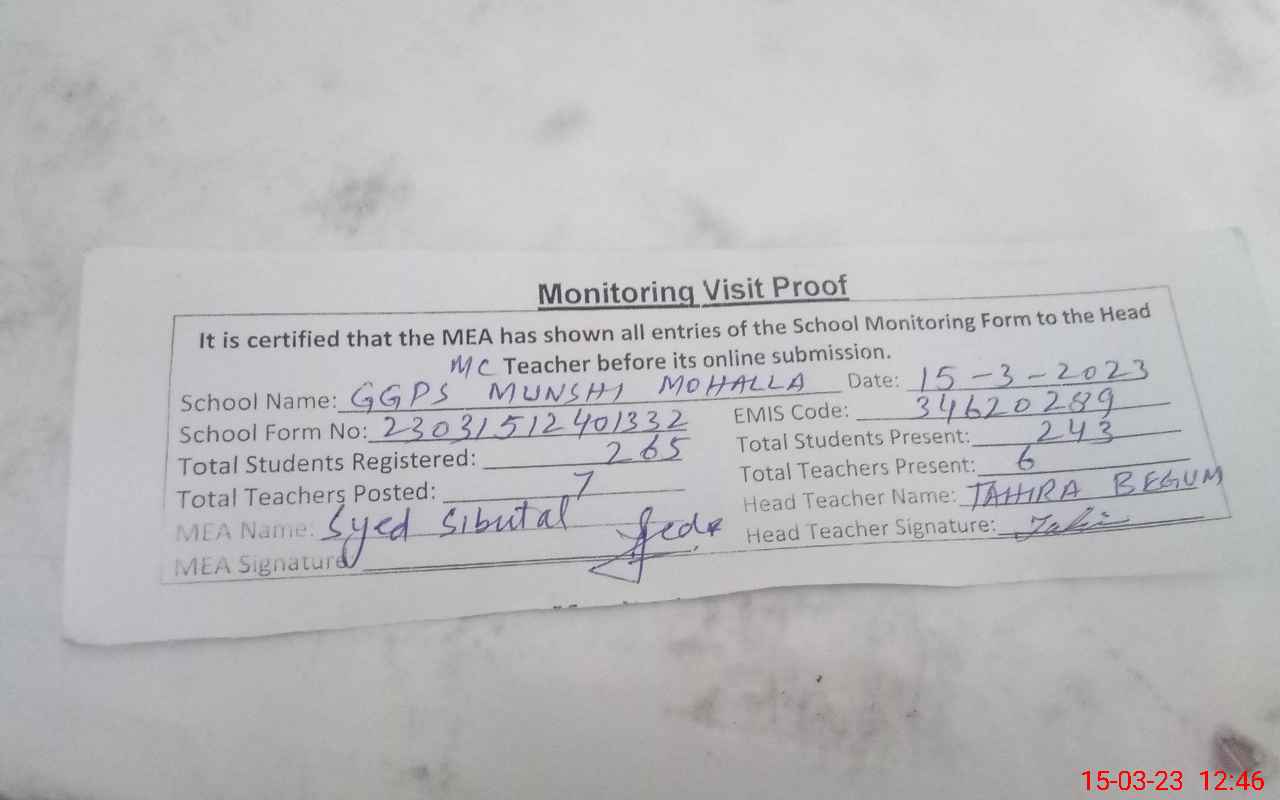 Monitoring Visit Proof
It is certified that the MEA has shown all entries of the School Monitoring Form to the Head
Teacher before its online submission.
School Name: GGPS MC MUNSHI MOHALLA Date: 15-3-2023
School Form No: 23031512401332 EMIS Code: 34620289
Total Students Registered: 265 Total Students Present: 243
Total Teachers Posted: 7 Total Teachers Present: 6
MEA Name: Syed Sibutal Head Teacher Name: TAHIRA BEGUM
MEA Signature Head Teacher Signature:
15-03-23 12:46